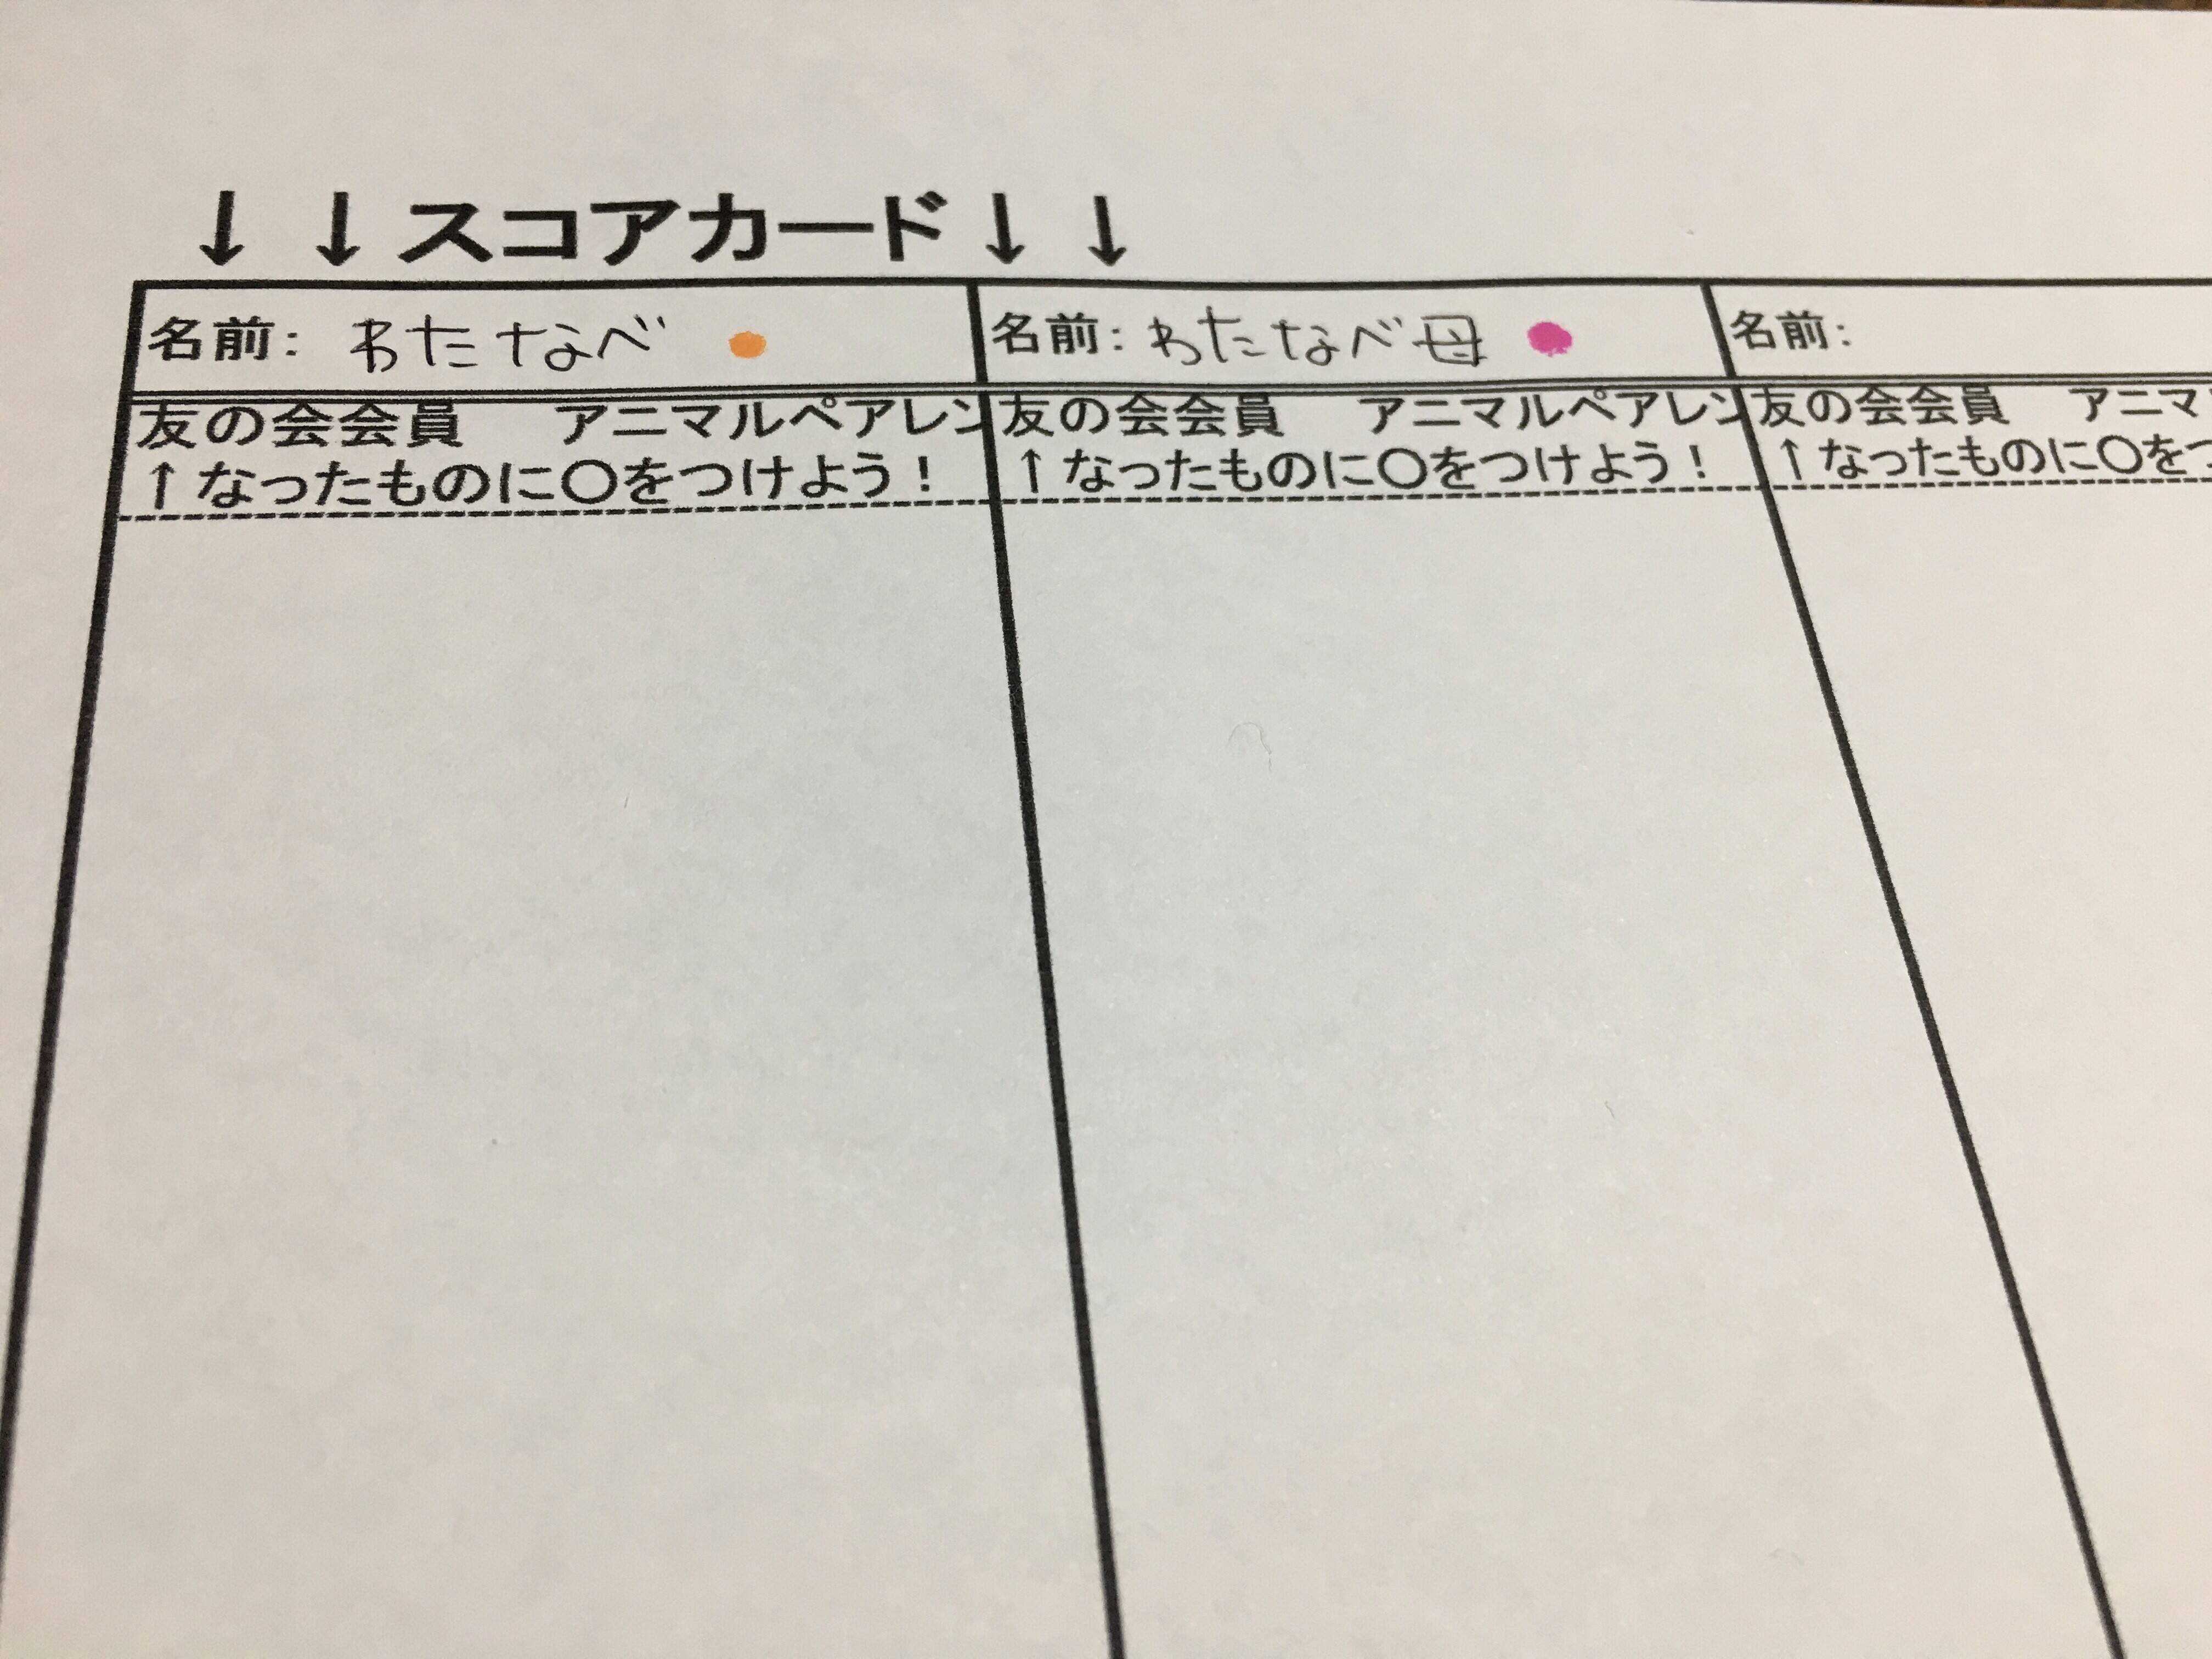 ↓ ↓スコアカード↓ ↓
名前: わたなべ
名前: わたなべ母
名前:
友の会会員 アニマルペアレン
友の会会員 アニマルペアレン
友の会会員 アニマ
↑なったものに○をつけよう!
↑なったものに○をつけよう!
↑なったものに○をつ